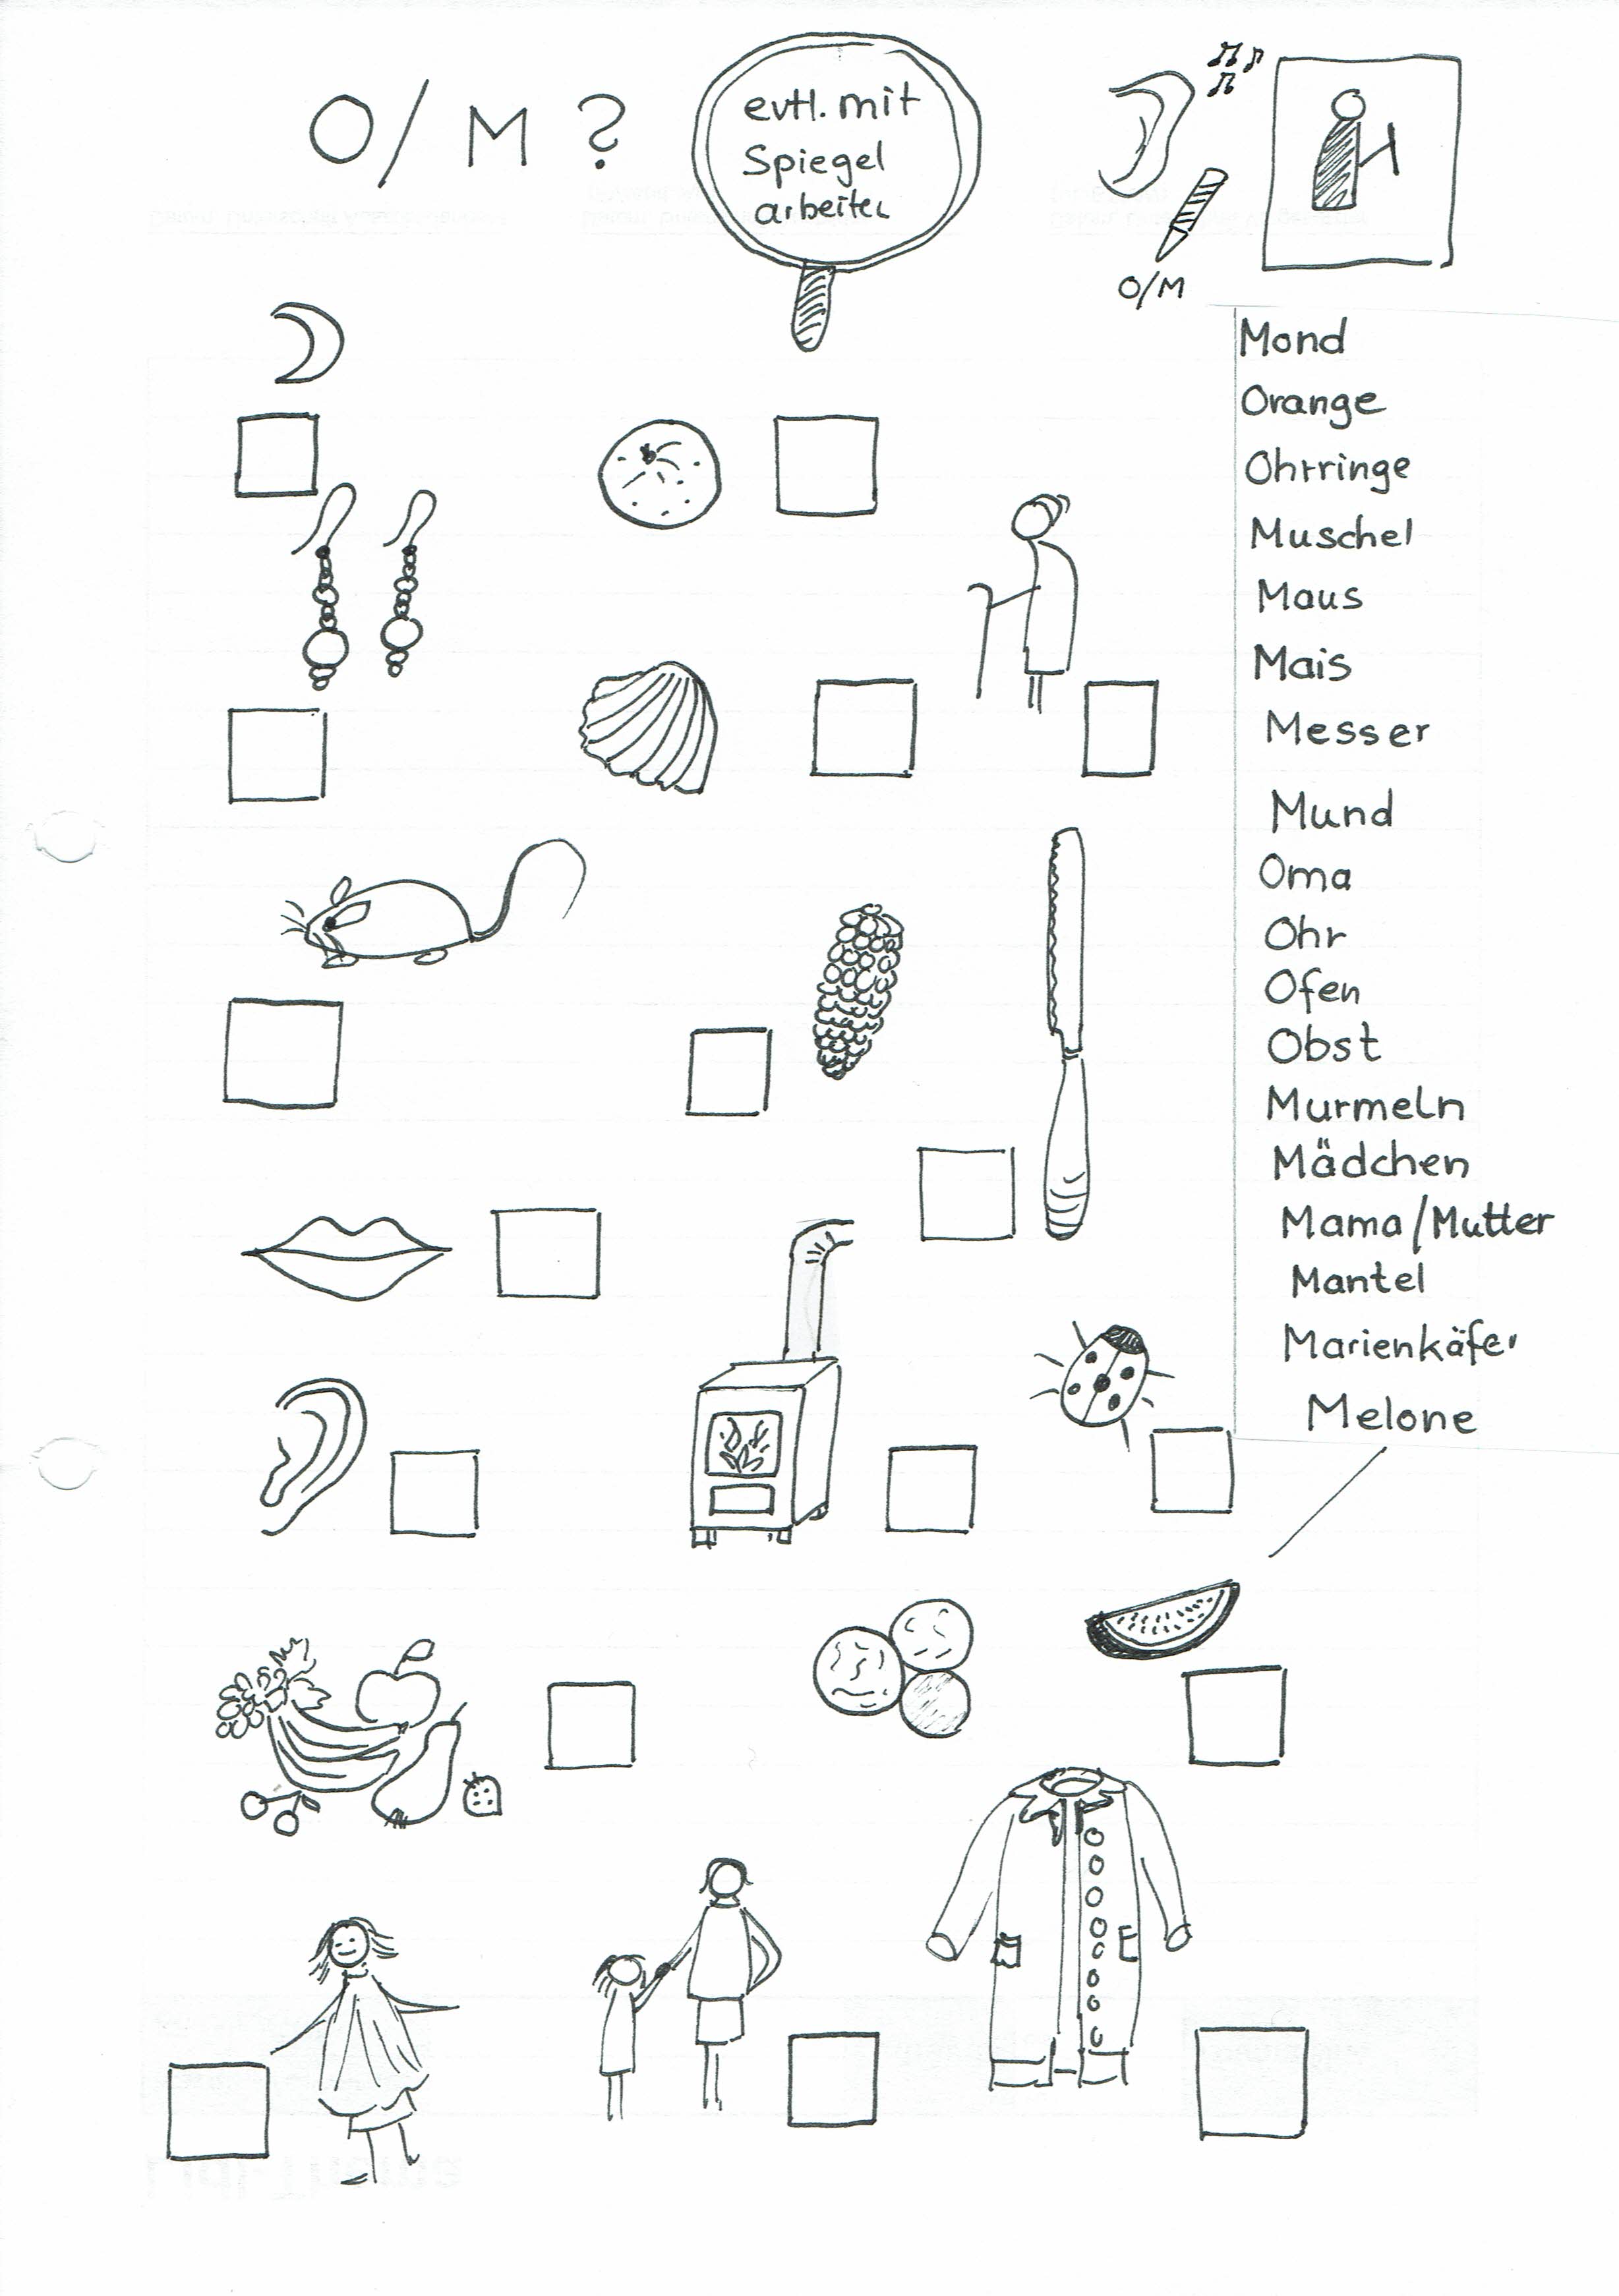 O/M?
evtl. mit
Spiegel
arbeiten
O/M
Mond
Orange
Ohrringe
Muschel
Maus
Mais
Messer
Mund
Oma
Ohr
Ofen
Obst
Murmeln
Mädchen
Mama/Mutter
Mantel
Marienkäfer
Melone